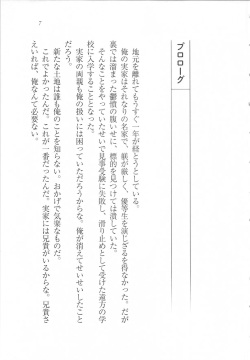 プロローグ
地元を離れてもうすぐ一年が経とうとしている。
俺の実家はそれなりの名家で、躾が厳しく、優等生を演じざるを得なかった。だが
裏では溜まった鬱憤の腹いせに、標的を見つけては潰していた。
やってきたことのせいで見事受験に失敗し、滑り止めとして受けた遠方の学
校に入学することとなった。
実家の両親も俺の扱いには困っていただろうからな。俺が消えてせいせいしたこと
だろう。
新たな土地は誰も俺のことを知らない。おかげで気楽なものだ。
これでよかったんだ。これが一番だったんだ。実家には兄貴がいるからな。兄貴さ
えいれば、俺なんて必要ない。
7